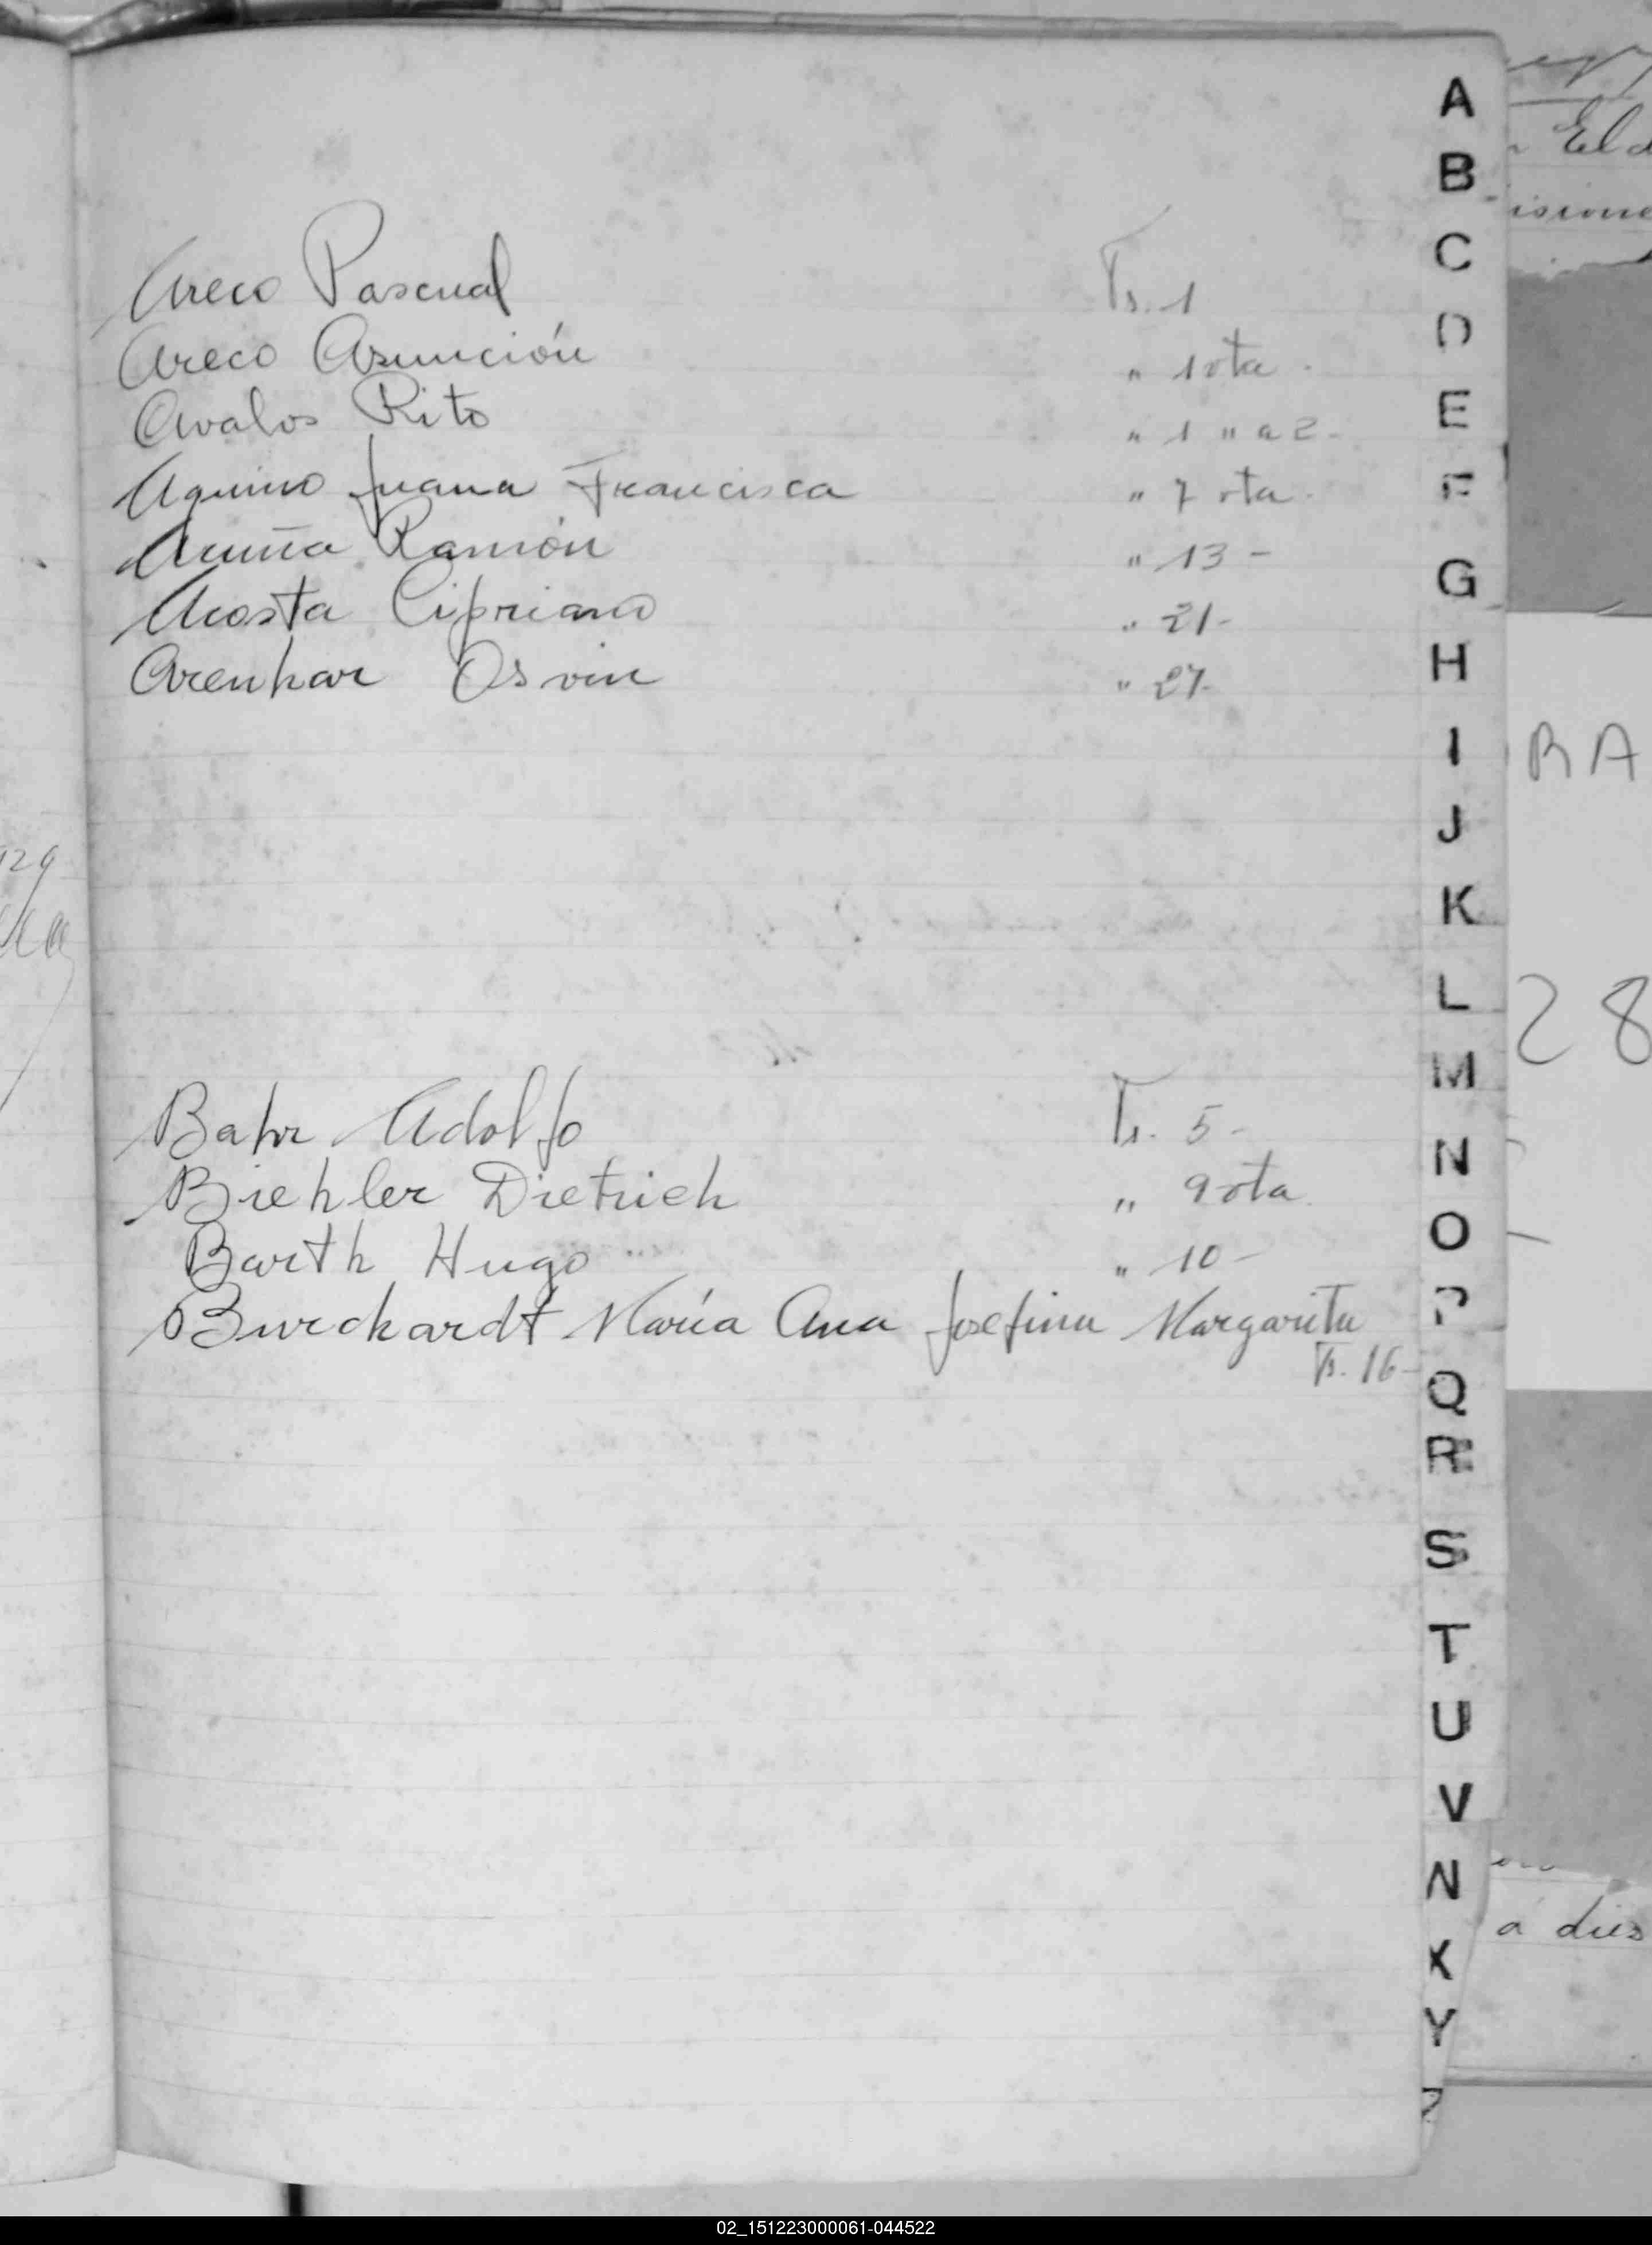 Areco Pascual Fs. 1
Areco Asunción " 1 vta.
Avalos Rito " 1 " a 2-
Aquino Juana Francisca " 7 vta.
Acuña Ramón " 13-
Acosta Cipriano " 21-
Arenhar Osvin " 27-
Bahr Adolfo Fs. 5-
Biehler Dietrich " 9 vta.
Barth Hugo " 10-
Burckardt María Ana Josefina Margarita
Fs. 16-
A
B
C
D
E
F
G
H
I
J
K
L
M
N
O
P
Q
R
S
T
U
V
N
X
Y
Z
RA
28
a dies
02_151223000061-044522